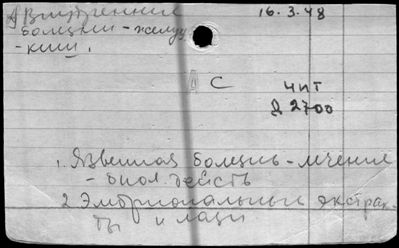 Внутренние 16.3.48
болезни - желуд
- киш.
С
ЧИТ
Д 2700
1. Язвенная болезнь - лечение
- биол. действ
2 Эмбриональные экстрак-
ты и